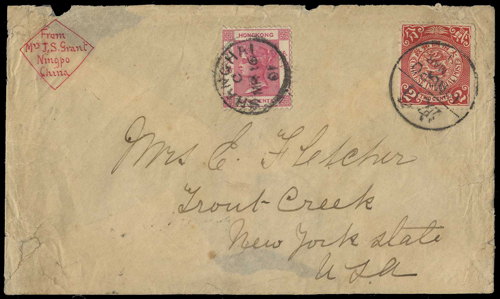 From
Mrs J.S. Grant
Ningpo
China
HONGKONG
SHANGHAI
Mrs E. Fletcher
Trout Creek
New York State
U.S.A